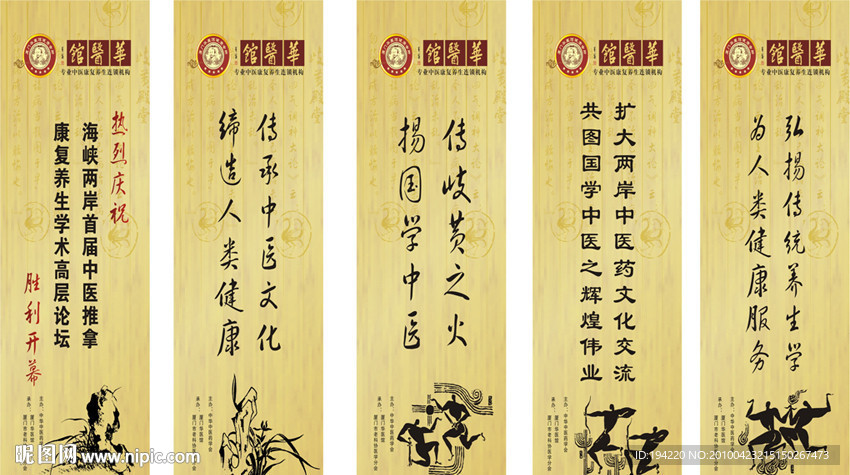 華醫館
专业中医康复养生连锁机构
热烈庆祝
海峡两岸首届中医推拿
康复养生学术高层论坛
胜利开幕
華醫館
专业中医康复养生连锁机构
传承中医文化
缔造人类健康
華醫館
专业中医康复养生连锁机构
传岐黄之火
揚国学中医
華醫館
专业中医康复养生连锁机构
扩大两岸中医药文化交流
共图国学中医之辉煌伟业
華醫館
专业中医康复养生连锁机构
弘揚传统养生学
为人类健康服务
昵图网 www.nipic.com
ID:194220 NO:20100423215150267473